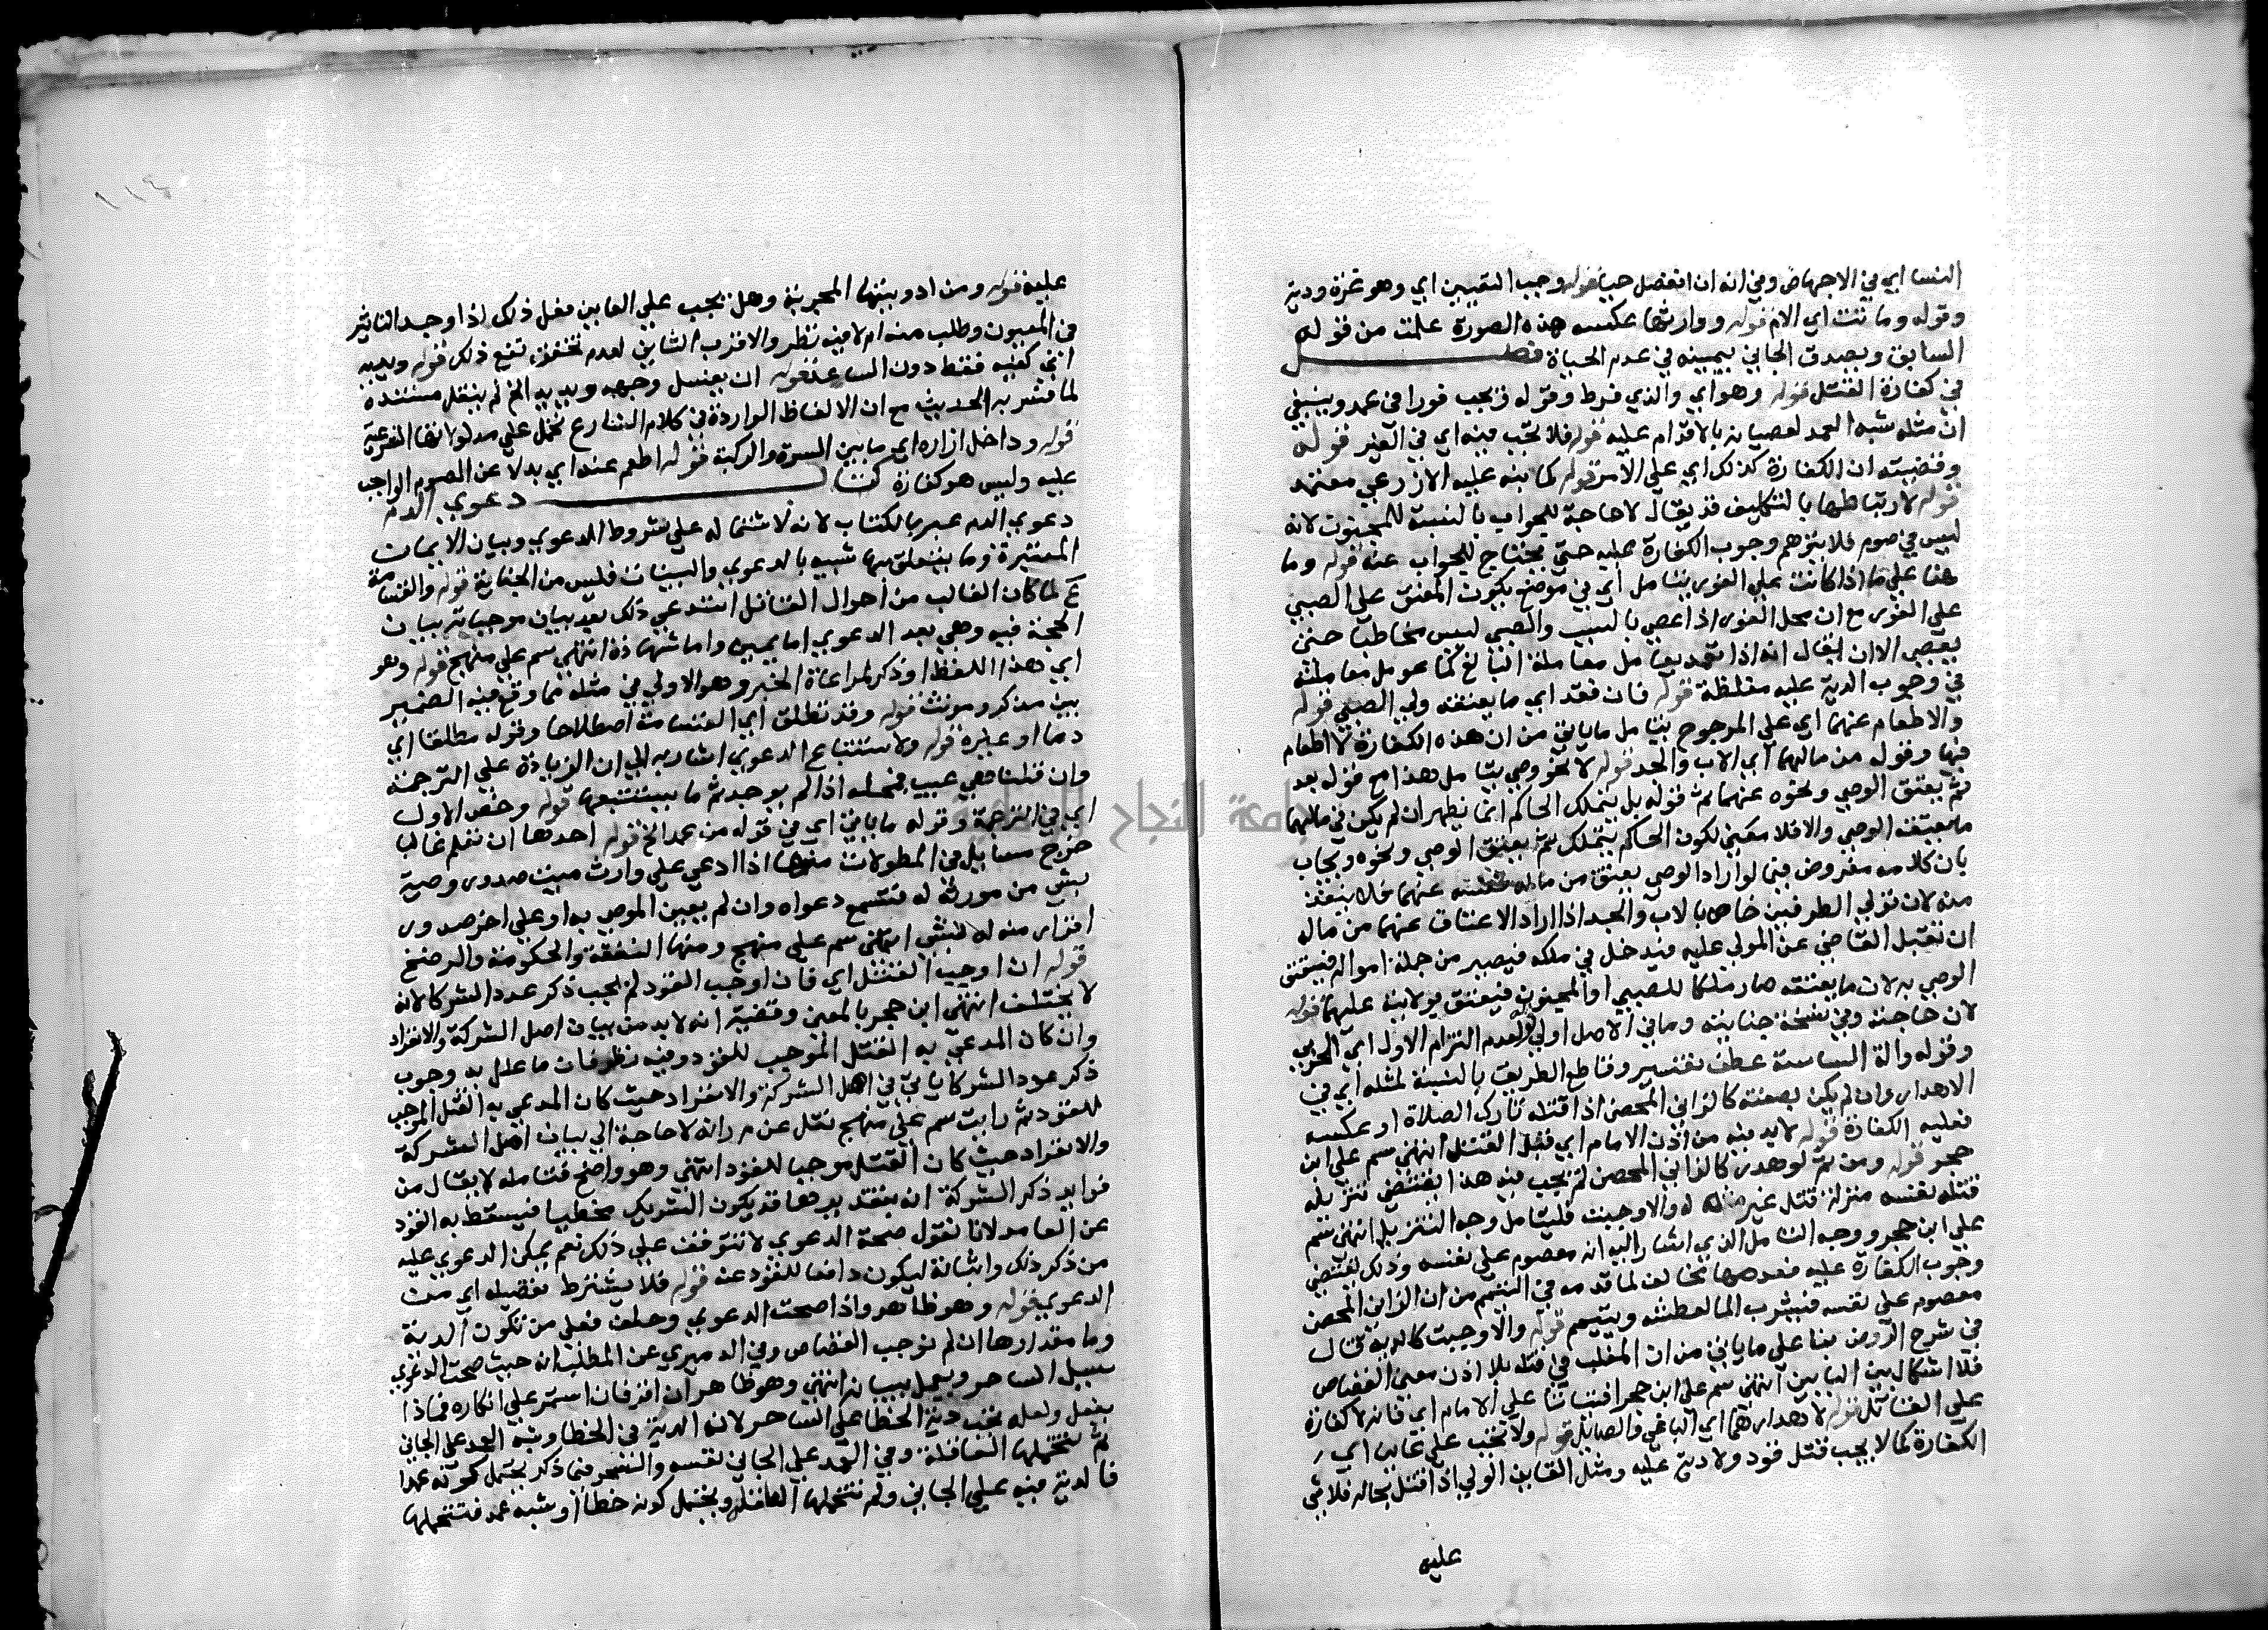 النسا اي في الاجهاض وفي انه ان انفصل حيا قوله وجب النقيين اي وهو غرة ودية
وقوله وماتت اي الام قوله ووارثها عكسه هذه الصورة علمت من قوله
السابق ويصدق الجاني بيمينه في عدم الحياة فصل
في كفارة القتل قوله وهو اي والذي فرط وقوله فيجب فورا في عمد وينبغي
ان مثله شبه العمد لعصيانه بالاقدام عليه قوله فلا تجب فيه اي في الغير قوله
وقضيته ان الكفارة كذلك اي على الامر قوله كما بنه عليه الاذرعي معتمد
قوله لارتباطها بالتكليف قد يقال لا حاجة للجواب بالنسبة للمجنون لانه
ليس في صوم فلا يتوهم وجوب الكفارة عليه حتى يحتاج للجواب عنه قوله وما
هنا على ما اذا كانت على الفور يتامل اي في موضع يكون المعتق على الصبي
على الفور مع ان محل الفور اذا عصى بالسبب والصبي ليس مخاطبا حتى
يعصي الا ان يقال انه اذا تعمد يعامل معاملة البالغ كما عومل معاملته
في وجوب الدية عليه مغلظة قوله فان فقد اي ما يعتقه ولي الصبي قوله
والاطعام عنهما اي على المرجوح يتامل ما ياتي من ان هذه الكفارة لا اطعام
فيها وقوله من مالهما اي الاب والجد قوله لا نحو وصي يتامل هذا مع قوله بعد
ثم يعتق الوصي ونحوه عنهما ثم قوله بل يتملك الحاكم انما يظهر ان لم يكن في مالهما
ما يعتقه الوصي والا فلا معنى لكون الحاكم يتملك ثم يعتق الوصي ونحوه ويجاب
بان كلامه مفروض فيما لو اراد الوصي يعتق من ماله عنهما فلا ينفذ
منه لان تولي الطرفين خاص بالاب والجد اذا اراد الاعتاق عنهما من ماله
ان يقبل القاضي عن المولى عليه فيدخل في ملكه فيصير من جملة امواله فيعتق
الوصي به لان ما يعتقه صار ملكا للصبي او المجنون فيعتق بولايته عليهما قوله
لان حاجته وفي نسخة جنايته وما في الاصل اولى قوله لعدم التزام الاول اي الحربي
وقوله والة السياسة عطف تفسير وقاطع الطريق بالنسبة لمثله اي في
الاهدار وان لم يكن بصفته كالزاني المحصن اذا قتله تارك الصلاة او عكسه
فعليه الكفارة قوله لابد فيه من اذن الامام اي قبل القتل انتهى سم على ابن
حجر قوله ومن ثم لو هدر كالزاني المحصن لم تجب فيه هذا يقتضي تنزيله
قتله لنفسه منزلة قتل غير مثله له والا وجبت فليتامل وجه التنزيل انتهى سم
على ابن حجر ووجه التامل الذي اشار اليه انه معصوم على نفسه وذلك يقتضي
وجوب الكفارة عليه فعدمها مخالف لما قدمه في التيمم من ان الزاني المحصن
معصوم على نفسه فيشرب الما لعطشه ويتيمم قوله والا وجبت كالدية قال
في شرح الروض بنا على ما ياتي من ان المغلب في قتله بلا اذن معنى القصاص
فلا اشكال بين البابين انتهى سم على ابن حجر افتياتا على الامام اي فانه لا كفارة
على القاتل قوله لاهدارهما اي الباغي والصايل قوله ولا تجب على عاين اي
الكفارة كما لا يجب قتل قود ولا دية عليه ومثل العاين الولي اذا قتل بحاله فلا شي
عليه
عليه قوله ومن ادويتها المجربة وهل يجب على العاين فعل ذلك اذا وجد التاثير
في المعيون وطلب منه ام لا فيه نظر والاقرب الثاني لعدم تحقق نفع ذلك قوله ويديه
اي كفيه فقط دون الساعد قوله ان يغسل وجهه ويديه الخ لم ينقل مستنده
لما فسر به الحديث مع ان الالفاظ الواردة في كلام الشارع تحمل على مدلولاتها الشرعية
قوله وداخل ازاره اي ما بين السرة والركبة قوله اطعم عنه اي بدلا عن الصوم الواجب
عليه وليس هو كفارة كتاب دعوى الدم
دعوى الدم عبر بالكتاب لانه لاشتماله على شروط الدعوى وبيان الايمان
المعتبرة وما يتعلق بها شبيه بالدعوى والبينات فليس من الجناية قوله والقسامة
ع لما كان الغالب من احوال القاتل استدعى ذلك بعد بيان موجباته بيان
الحجة فيه وهي بعد الدعوى اما يمين واما شهادة انتهى سم على منهج قوله وهو
اي هذا اللفظ وذكر لمراعاة الخبر وهو الاولى في مثله مما وقع فيه الضمير
بين مذكر ومونث قوله وقد تطلق اي القسامة اصطلاحا وقوله مطلقا اي
دما او غيره قوله ولاستتباع الدعوى اشار به الى ان الزيادة على الترجمة
وان قلنا هي عيب فمحله اذا لم يوجد ثم ما يستتبعها قوله وحذف الاول
اي في الترجمة وقوله ما ياتي اي في قوله من عمد الخ قوله احدها ان تعلم غالبا
خرج مسايل في المطولات منها اذا ادعى على وارث ميت صدور وصية
بشي من مورثه له فتسمع دعواه وان لم يعين الموصى به او على اخر صدور
اقرار منه له بشي انتهى سم على منهج ومنها النفقة والحكومة والرضخ
قوله ان اوجب القتل اي فان اوجب القود لم يجب ذكر عدد الشركا لانه
لا يختلف انتهى ابن حجر بالمعنى وقضيته انه لابد من بيان اصل الشركة والانفراد
وان كان المدعى به القتل الموجب للقود وفيه نظر فان ما علل به وجوب
ذكر عدد الشركا ياتي في اصل الشركة والانفراد حيث كان المدعى به القتل الموجب
للقود ثم رايت سم على منهج نقل عن م ر انه لا حاجة الى بيان اصل الشركة
والانفراد حيث كان القتل موجبا للقود انتهى وهو واضح فتامله لا يقال من
فوايد ذكر الشركة انه بتقديرها قد يكون الشريك مخطيا فيسقط به القود
عن العامد لانا نقول صحة الدعوى لا تتوقف على ذلك نعم يمكن الدعوى عليه
من ذكر ذلك واثباته ليكون دافعا للقود عنه قوله فلا يشترط تفصيله اي من
الدعوى قوله وهو ظاهر واذا صحت الدعوى وحلف فعلى من تكون الدية
وما مقدارها ان لم نوجب القصاص وفي الدميري عن المطلب انه حيث صحت الدعوى
سيل الساحر ويعمل ببيانه انتهى وهو ظاهر ان اقر فان استمر على انكاره فماذا
يفعل ولعله تجب دية الخطا على الساحر لان الدية في الخطا وشبه العمد على الجاني
ثم تتحملها العاقلة وفي العمد على الجاني نفسه والسحر فيما ذكر يحتمل كونه عمدا
فالدية فيه على الجاني ولم تتحملها العاقلة ويحتمل كونه خطا او شبه عمد فتتحملها